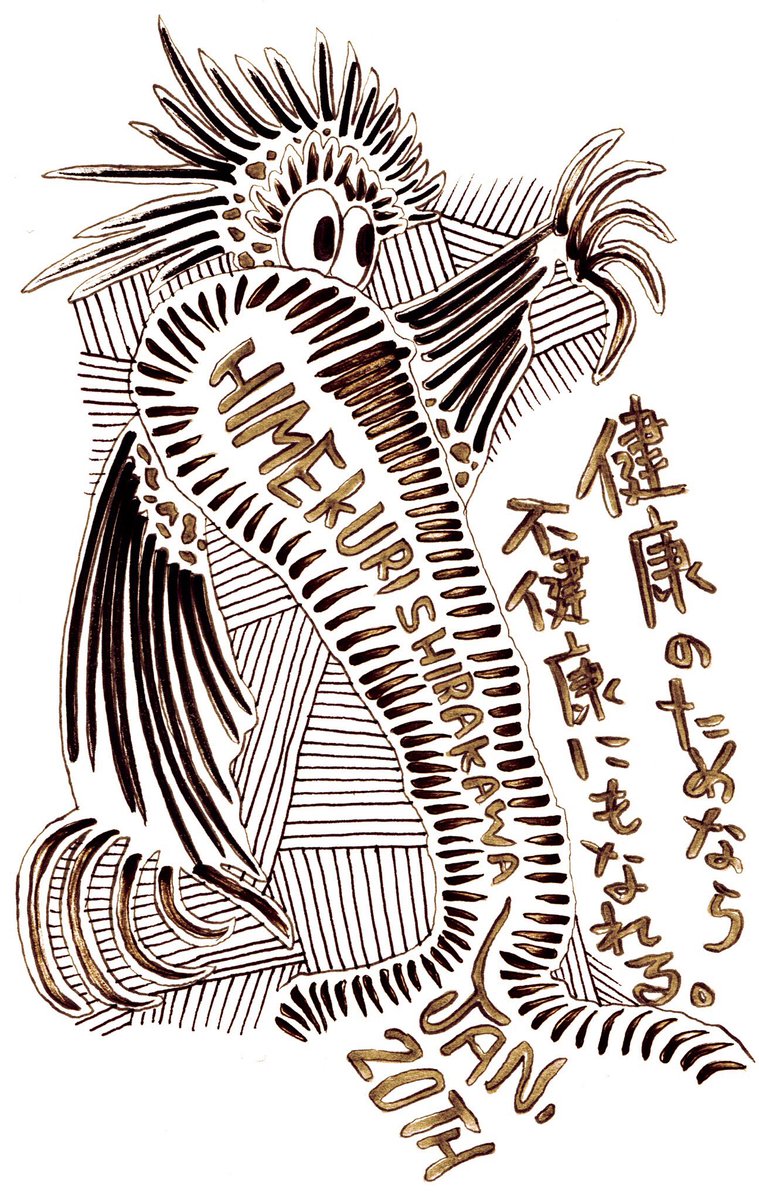 HIMEKURI SHIRAKAWA
JAN.
20TH
健康のためなら
不健康にもなれる。